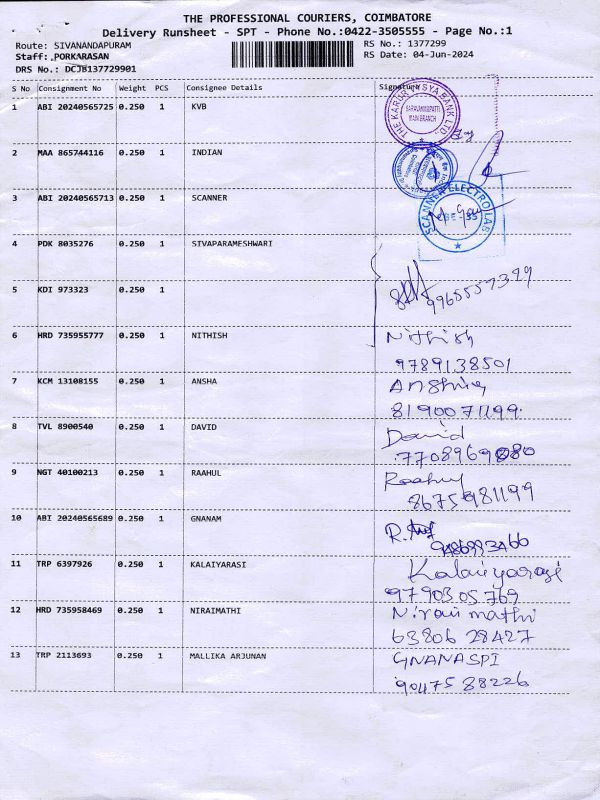 THE PROFESSIONAL COURIERS, COIMBATORE
Delivery Runsheet - SPT - Phone No.:0422-3505555 - Page No.:1
Route: SIVANANDAPURAM RS No.: 1377299
Staff: PORKARASAN RS Date: 04-Jun-2024
DRS No.: DCJB137729901
S No Consignment No Weight PCS Consignee Details Signature
1 ABI 20240565725 0.250 1 KVB
THE KARUR VYSYA BANK LTD.
MAIN BRANCH
2 MAA 865744116 0.250 1 INDIAN
3 ABI 20240565713 0.250 1 SCANNER
SCANNER ELECTRO LAB
4 PDK 8035276 0.250 1 SIVAPARAMESHWARI
5 KDI 973323 0.250 1
9965557329
6 HRD 735955777 0.250 1 NITHISH Nithish
9789138501
7 KCM 13108155 0.250 1 ANSHA
8190071199
8 TVL 8900540 0.250 1 DAVID David
7708969080
9 NGT 40100213 0.250 1 RAAHUL Raahul
8675981199
10 ABI 20240565689 0.250 1 GNANAM
9486993466
11 TRP 6397926 0.250 1 KALAIYARASI Kalaiyarasi
9790305769
12 HRD 735958469 0.250 1 NIRAIMATHI Nirai mathi
63806 28427
13 TRP 2113693 0.250 1 MALLIKA ARJUNAN GNANASPI
90475 88226